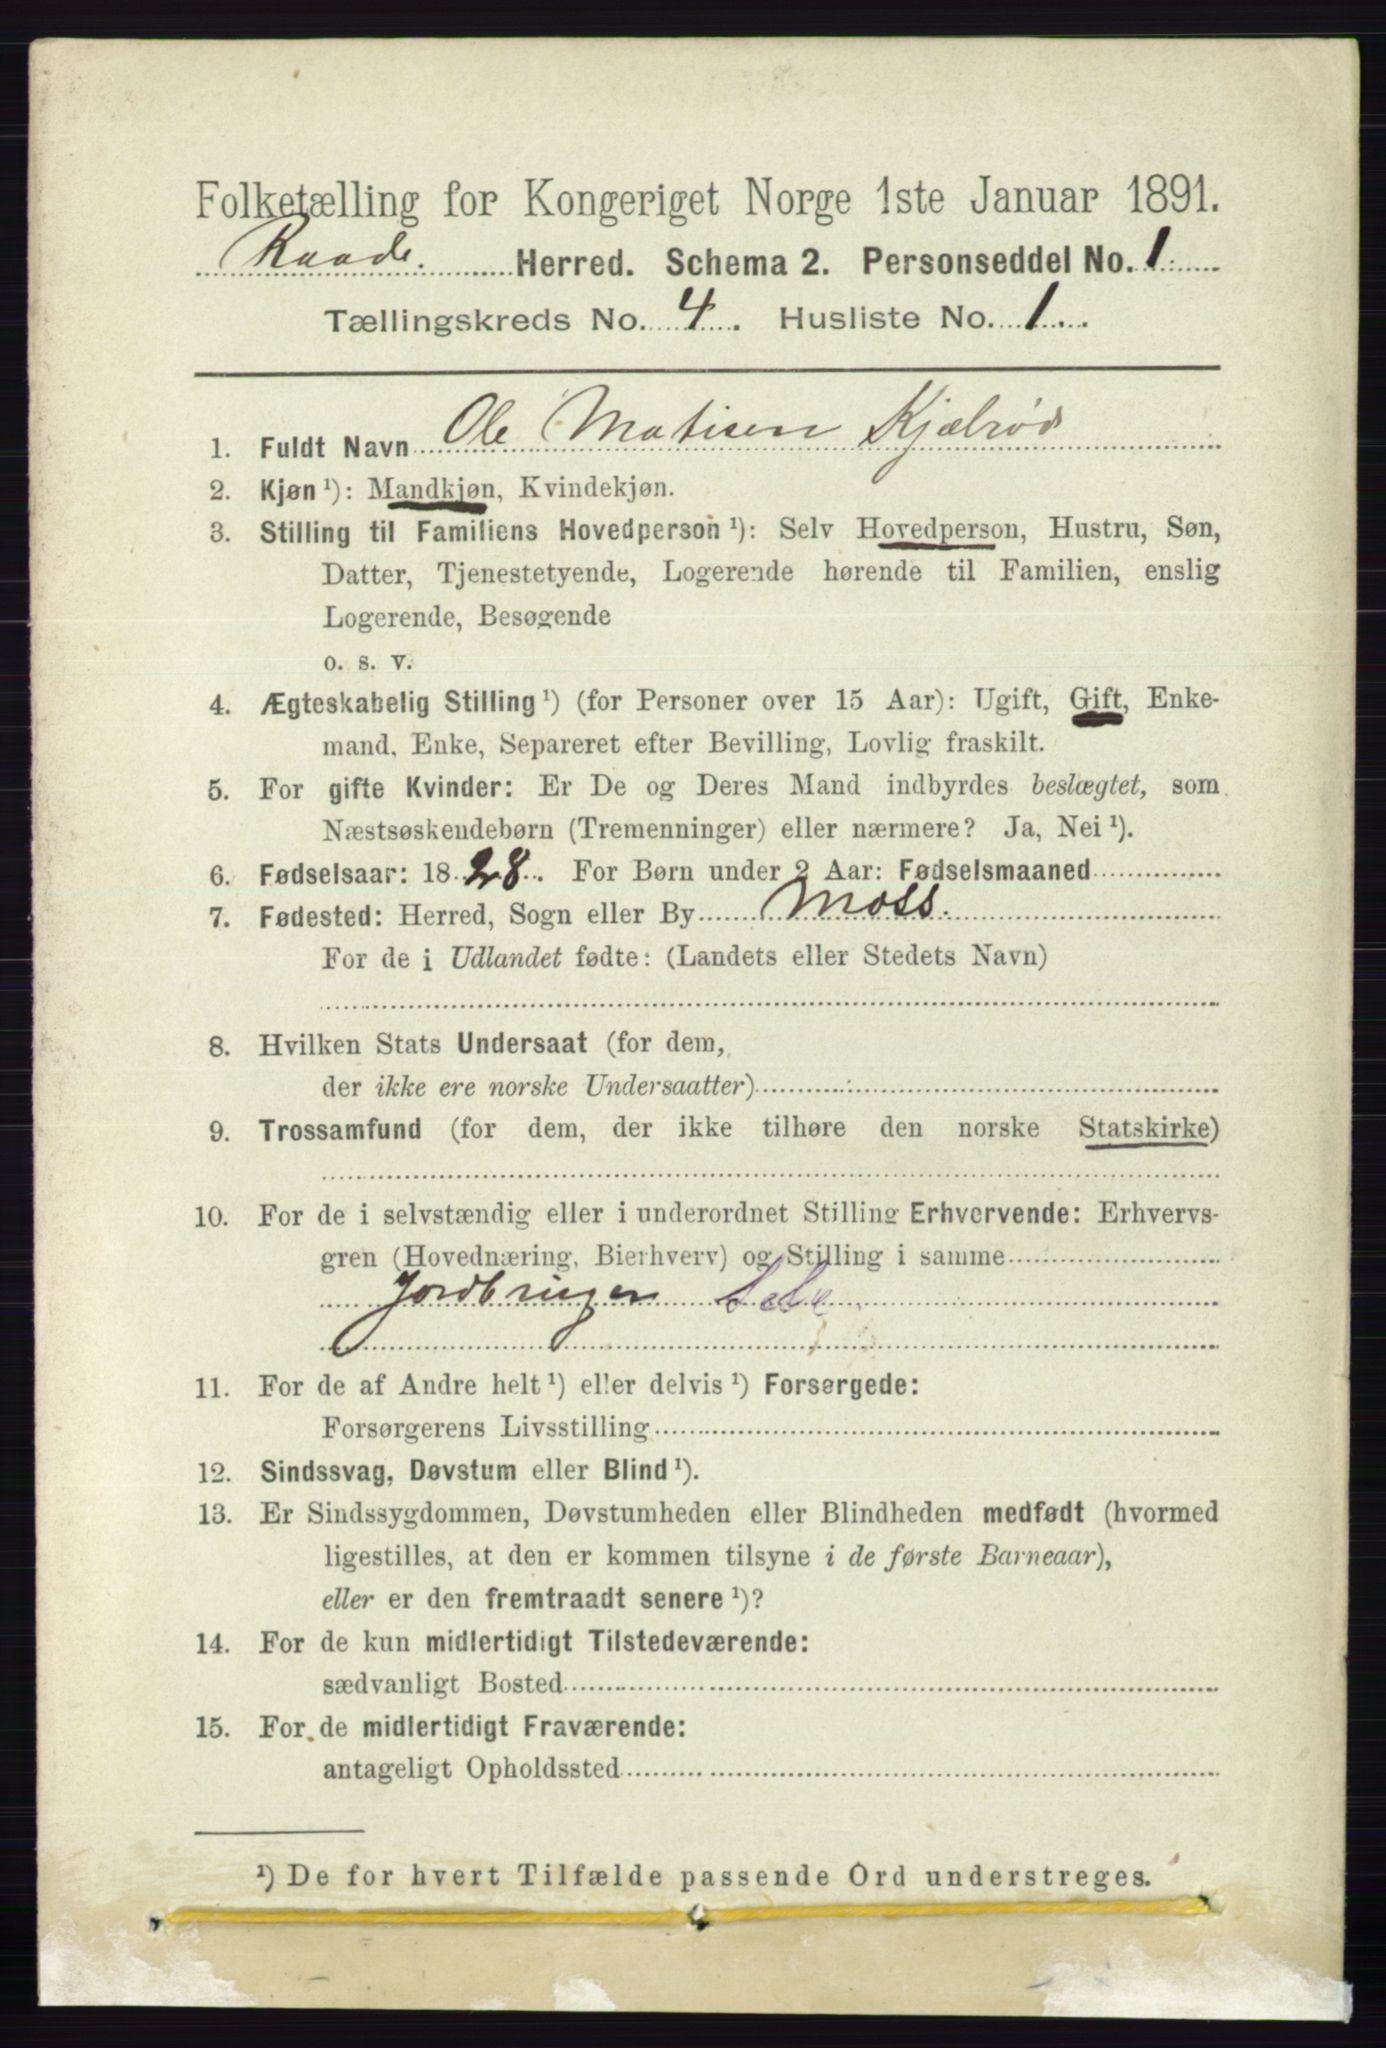 Folketælling for Kongeriget Norge 1ste Januar 1891.
Raade. Herred. Schema 2. Personseddel No. 1
Tællingskreds No. 4. Husliste No. 1.
1. Fuldt Navn Ole Matisen Kjælrød
2. Kjøn ¹): Mandkjøn, Kvindekjøn.
3. Stilling til Familiens Hovedperson ¹): Selv Hovedperson, Hustru, Søn,
Datter, Tjenestetyende, Logerende hørende til Familien, enslig
Logerende, Besøgende
o. s. v.
4. Ægteskabelig Stilling ¹) (for Personer over 15 Aar): Ugift, Gift, Enke-
mand, Enke, Separeret efter Bevilling, Lovlig fraskilt.
5. For gifte Kvinder: Er De og Deres Mand indbyrdes beslægtet, som
Næstsøskendebørn (Tremenninger) eller nærmere? Ja, Nei ¹).
6. Fødselsaar: 1828. For Børn under 2 Aar: Fødselsmaaned
7. Fødested: Herred, Sogn eller By Moss.
For de i Udlandet fødte: (Landets eller Stedets Navn)
8. Hvilken Stats Undersaat (for dem,
der ikke ere norske Undersaatter)
9. Trossamfund (for dem, der ikke tilhøre den norske Statskirke)
10. For de i selvstændig eller i underordnet Stilling Erhvervende: Erhvervs-
gren (Hovednæring, Bierhverv) og Stilling i samme
Jordbruger
11. For de af Andre helt ¹) eller delvis ¹) Forsørgede:
Forsørgerens Livsstilling
12. Sindssvag, Døvstum eller Blind ¹).
13. Er Sindssygdommen, Døvstumheden eller Blindheden medfødt (hvormed
ligestilles, at den er kommen tilsyne i de første Barneaar),
eller er den fremtraadt senere ¹)?
14. For de kun midlertidigt Tilstedeværende:
sædvanligt Bosted
15. For de midlertidigt Fraværende:
antageligt Opholdssted
¹) De for hvert Tilfælde passende Ord understreges.